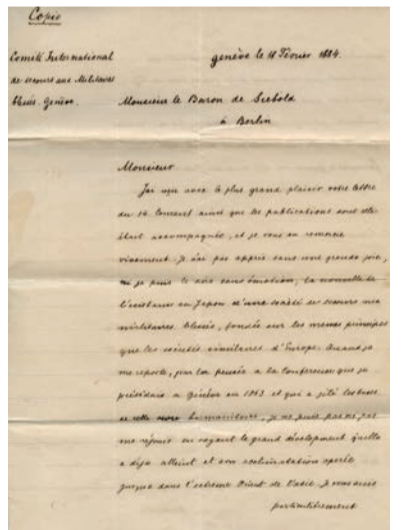 Copie
Comité International
de secours aux Militaires
blessés. Genève.
genève le 18 Février 1884.
Monsieur le Baron de Siebold
à Berlin
Monsieur
J'ai reçu avec le plus grand plaisir votre lettre
du 14 courant ainsi que les publications dont elle
était accompagnée, et je vous en remercie
vivement. Je n'ai pas appris sans une grande joie,
ni je puis le dire sans émotion, la nouvelle de
l'existence au Japon d'une société de secours aux
militaires blessés, fondée sur les mêmes principes
que les sociétés similaires d'Europe. Quand je
me reporte, par la pensée à la Conférence que je
présidais à Genève en 1863 et qui a jeté les bases
de cette humanitaire, je ne puis pas ne pas
me réjouir en voyant le grand développement qu'elle
a déja atteint et son acclimatation opérée
jusque dans l'extrême Orient de l'asie. Je vous
particulièrement